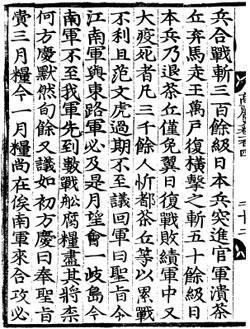 兵合戰斬三百餘級日本兵突進官軍潰茶
丘弃馬走王萬戶復横擊之斬五十餘級日
本兵乃退茶丘僅免翼日復戰敗績軍中又
大疫死者凡三千餘人忻都茶丘等以累戰
不利且范文虎過期不至議回軍曰聖旨令
江南軍與東路軍必及是月望會一歧島今
南軍不至我軍先到數戰船腐糧盡其將柰
何方慶默然旬餘又議如初方慶曰奉聖旨
賫三月糧今一月糧尚在俟南軍來合攻必